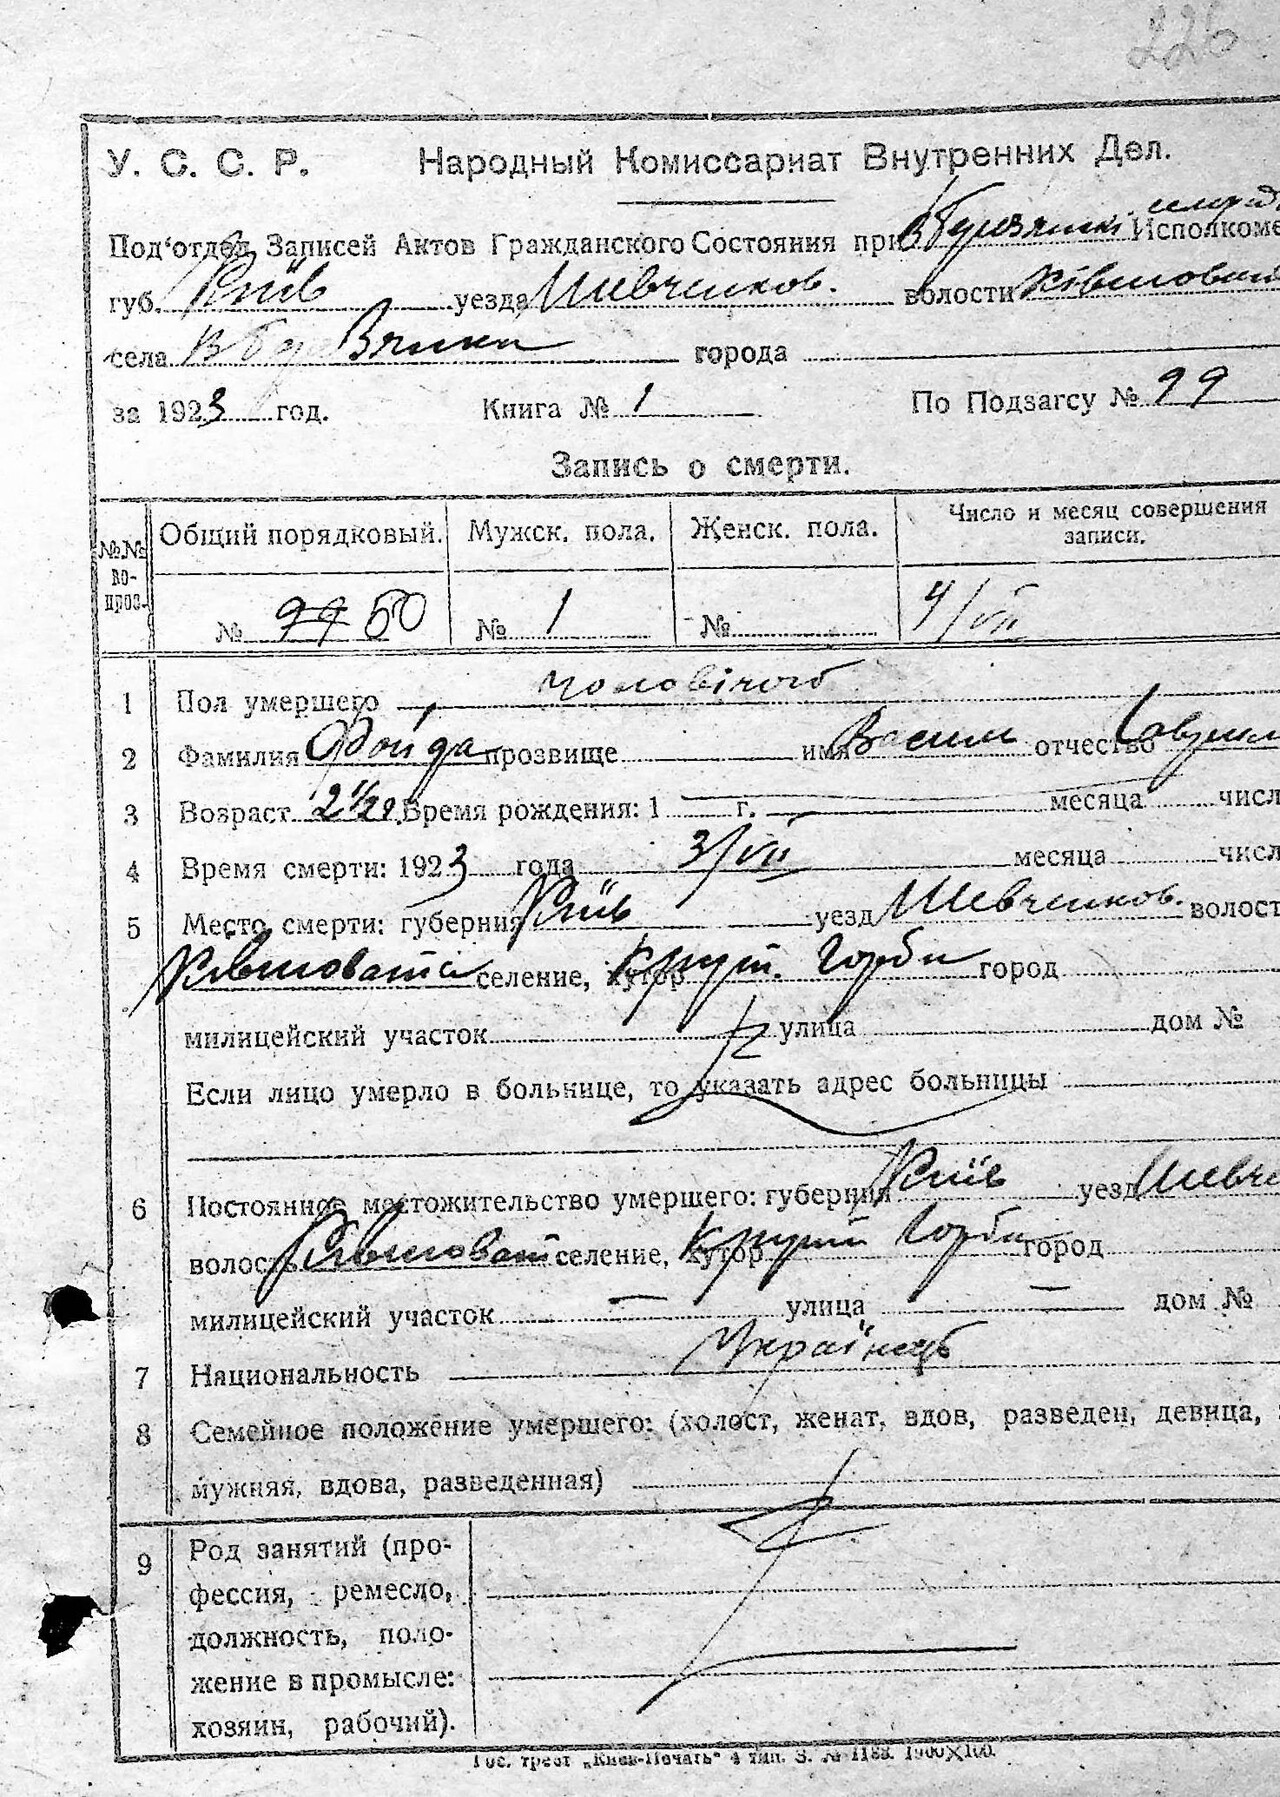 226
У. С. С. Р. Народный Комиссариат Внутренних Дел.
Под'отдел Записей Актов Гражданского Состояния при Исполкоме
губ. Київ уезда Шевченков. волости
села города
за 1923 год. Книга № 1 По Подзагсу № 99
Запись о смерти.
№№ во-прос. Общий порядковый. Мужск. пола. Женск. пола. Число и месяц совершения записи.
№ 99 50 № 1 № 4/VII
1 Пол умершего чоловічого
2 Фамилия Фойда прозвище имя Василь отчество
3 Возраст 2 1/2 г. Время рождения: 1 г. месяца числ
4 Время смерти: 1923 года 3/VII месяца числ
5 Место смерти: губерния Київ уезд Шевченков. волост
селение, хутор Крут. Горби город
милицейский участок улица дом №
Если лицо умерло в больнице, то указать адрес больницы
6 Постоянное местожительство умершего: губерния Київ уезд Шевче
волость селение, хутор Круті Горби город
милицейский участок — улица — дом №
7 Национальность Українець
8 Семейное положение умершего: (холост, женат, вдов, разведен, девица,
мужняя, вдова, разведенная)
9 Род занятий (про-
фессия, ремесло,
должность, поло-
жение в промысле:
хозяин, рабочий).
Гос. трест „Киев-Печать" 4 тип. З. №